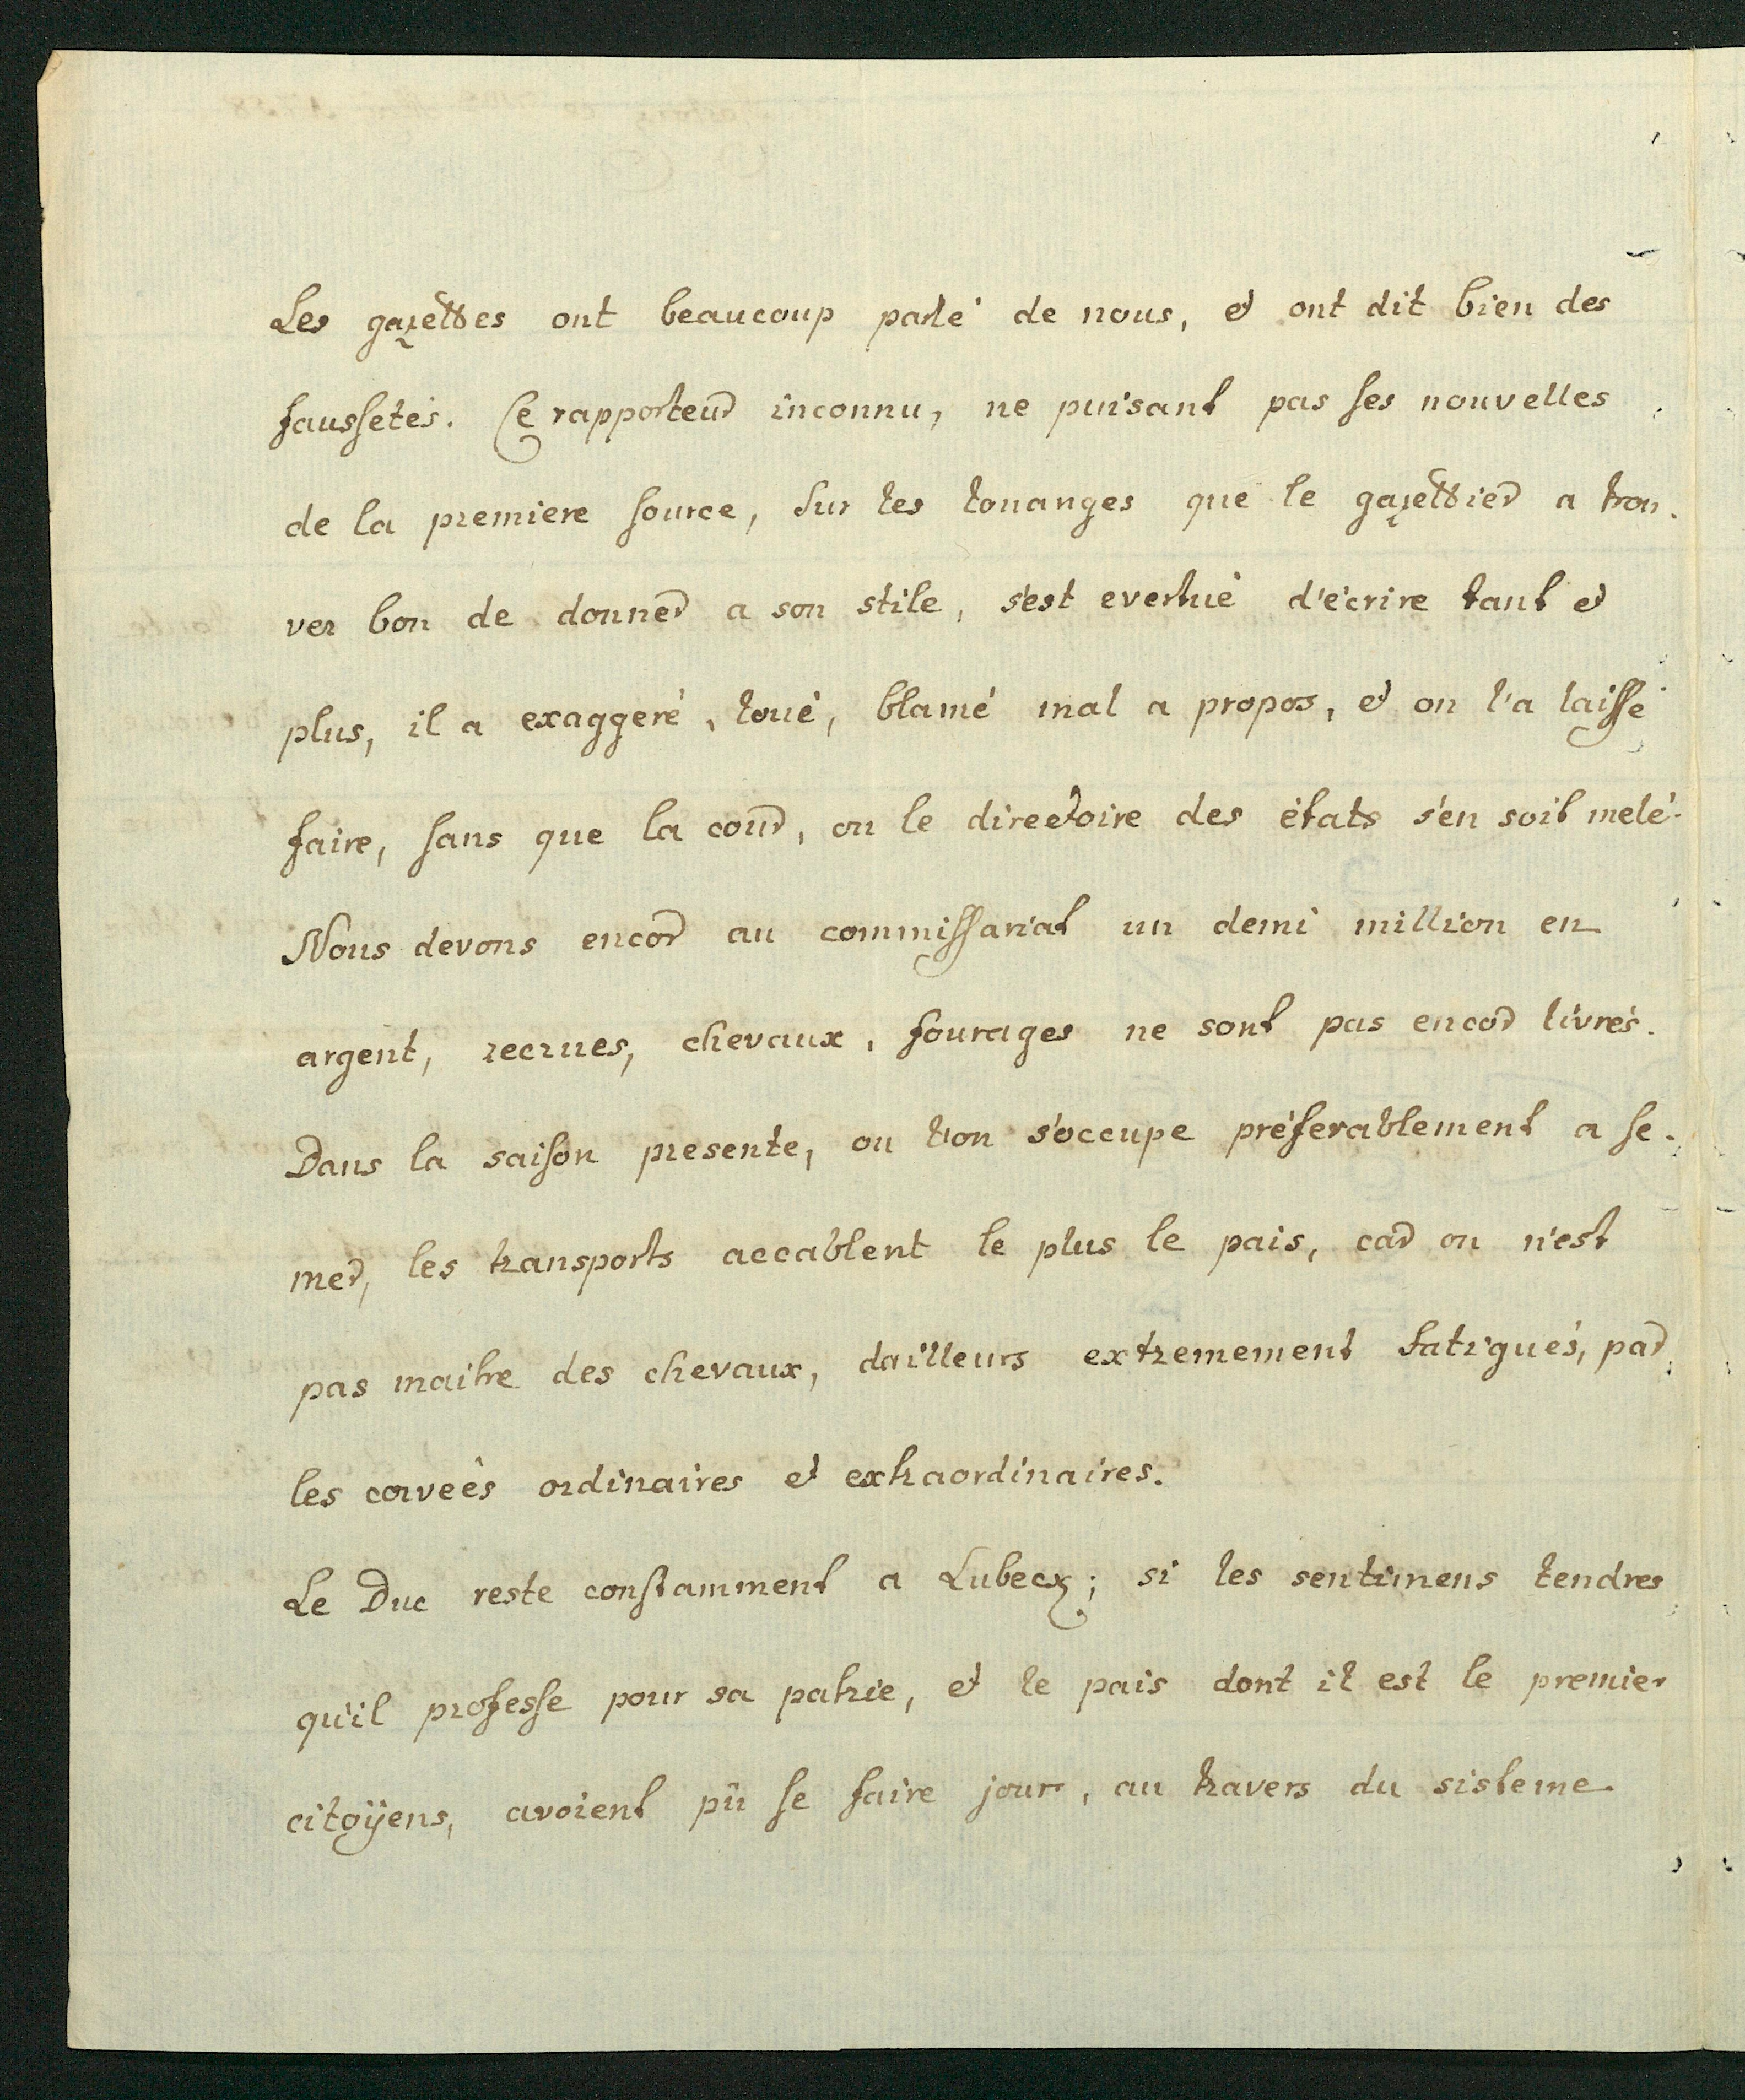 Les gazettes ont beaucoup parlé de nous, et ont dit bien des
faussetés. Ce rapporteur inconnu, ne puisant pas ses nouvelles
de la premiere source, sur les louanges que le gazettier a trou-
ver bon de donner a son stile, s'est evertué d'écrire tant et
plus, il a exaggeré, loué, blamé mal a propos, et on l'a laissé
faire, sans que la cour, ou le directoire des états s'en soit melé.
Nous devons encor au commissariat un demi million en
argent, recrues, chevaux, fourages ne sont pas encor livrés.
Dans la saison presente, ou l'on s'occupe préferablement a se-
mer, les transports accablent le plus le pais, car on n'est
pas maitre des chevaux, dailleurs extremement fatigués, par
les corveés ordinaires et extraordinaires.
Le Duc reste constamment a Lubeck; si les sentimens tendres
qu'il professe pour sa patrie, et le pais dont il est le premier
citoÿens, avoient pû se faire jour, au travers du sisteme